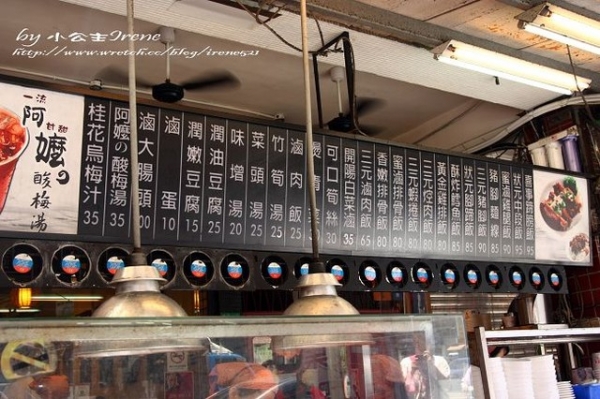 by 小公主Irene
http://www.wretch.cc/blog/irene521
一流
甘甜
阿嬤の
酸梅湯
桂花烏梅汁 35
阿嬤の酸梅湯 35
滷大腸頭 100
滷蛋 10
潤嫩豆腐 15
潤油豆腐 25
味增湯 20
菜頭湯 25
竹筍湯 25
滷肉飯
可口筍絲 30
開陽白菜滷 35
三元滷肉飯 65
香嫩排骨飯 80
蜜滷排骨飯 80
三元焢肉飯 80
黃金雞排飯 80
酥炸鱈魚飯 85
狀元腳腿飯 85
三元豬腳飯 85
豬腳麵線 90
95
95
95